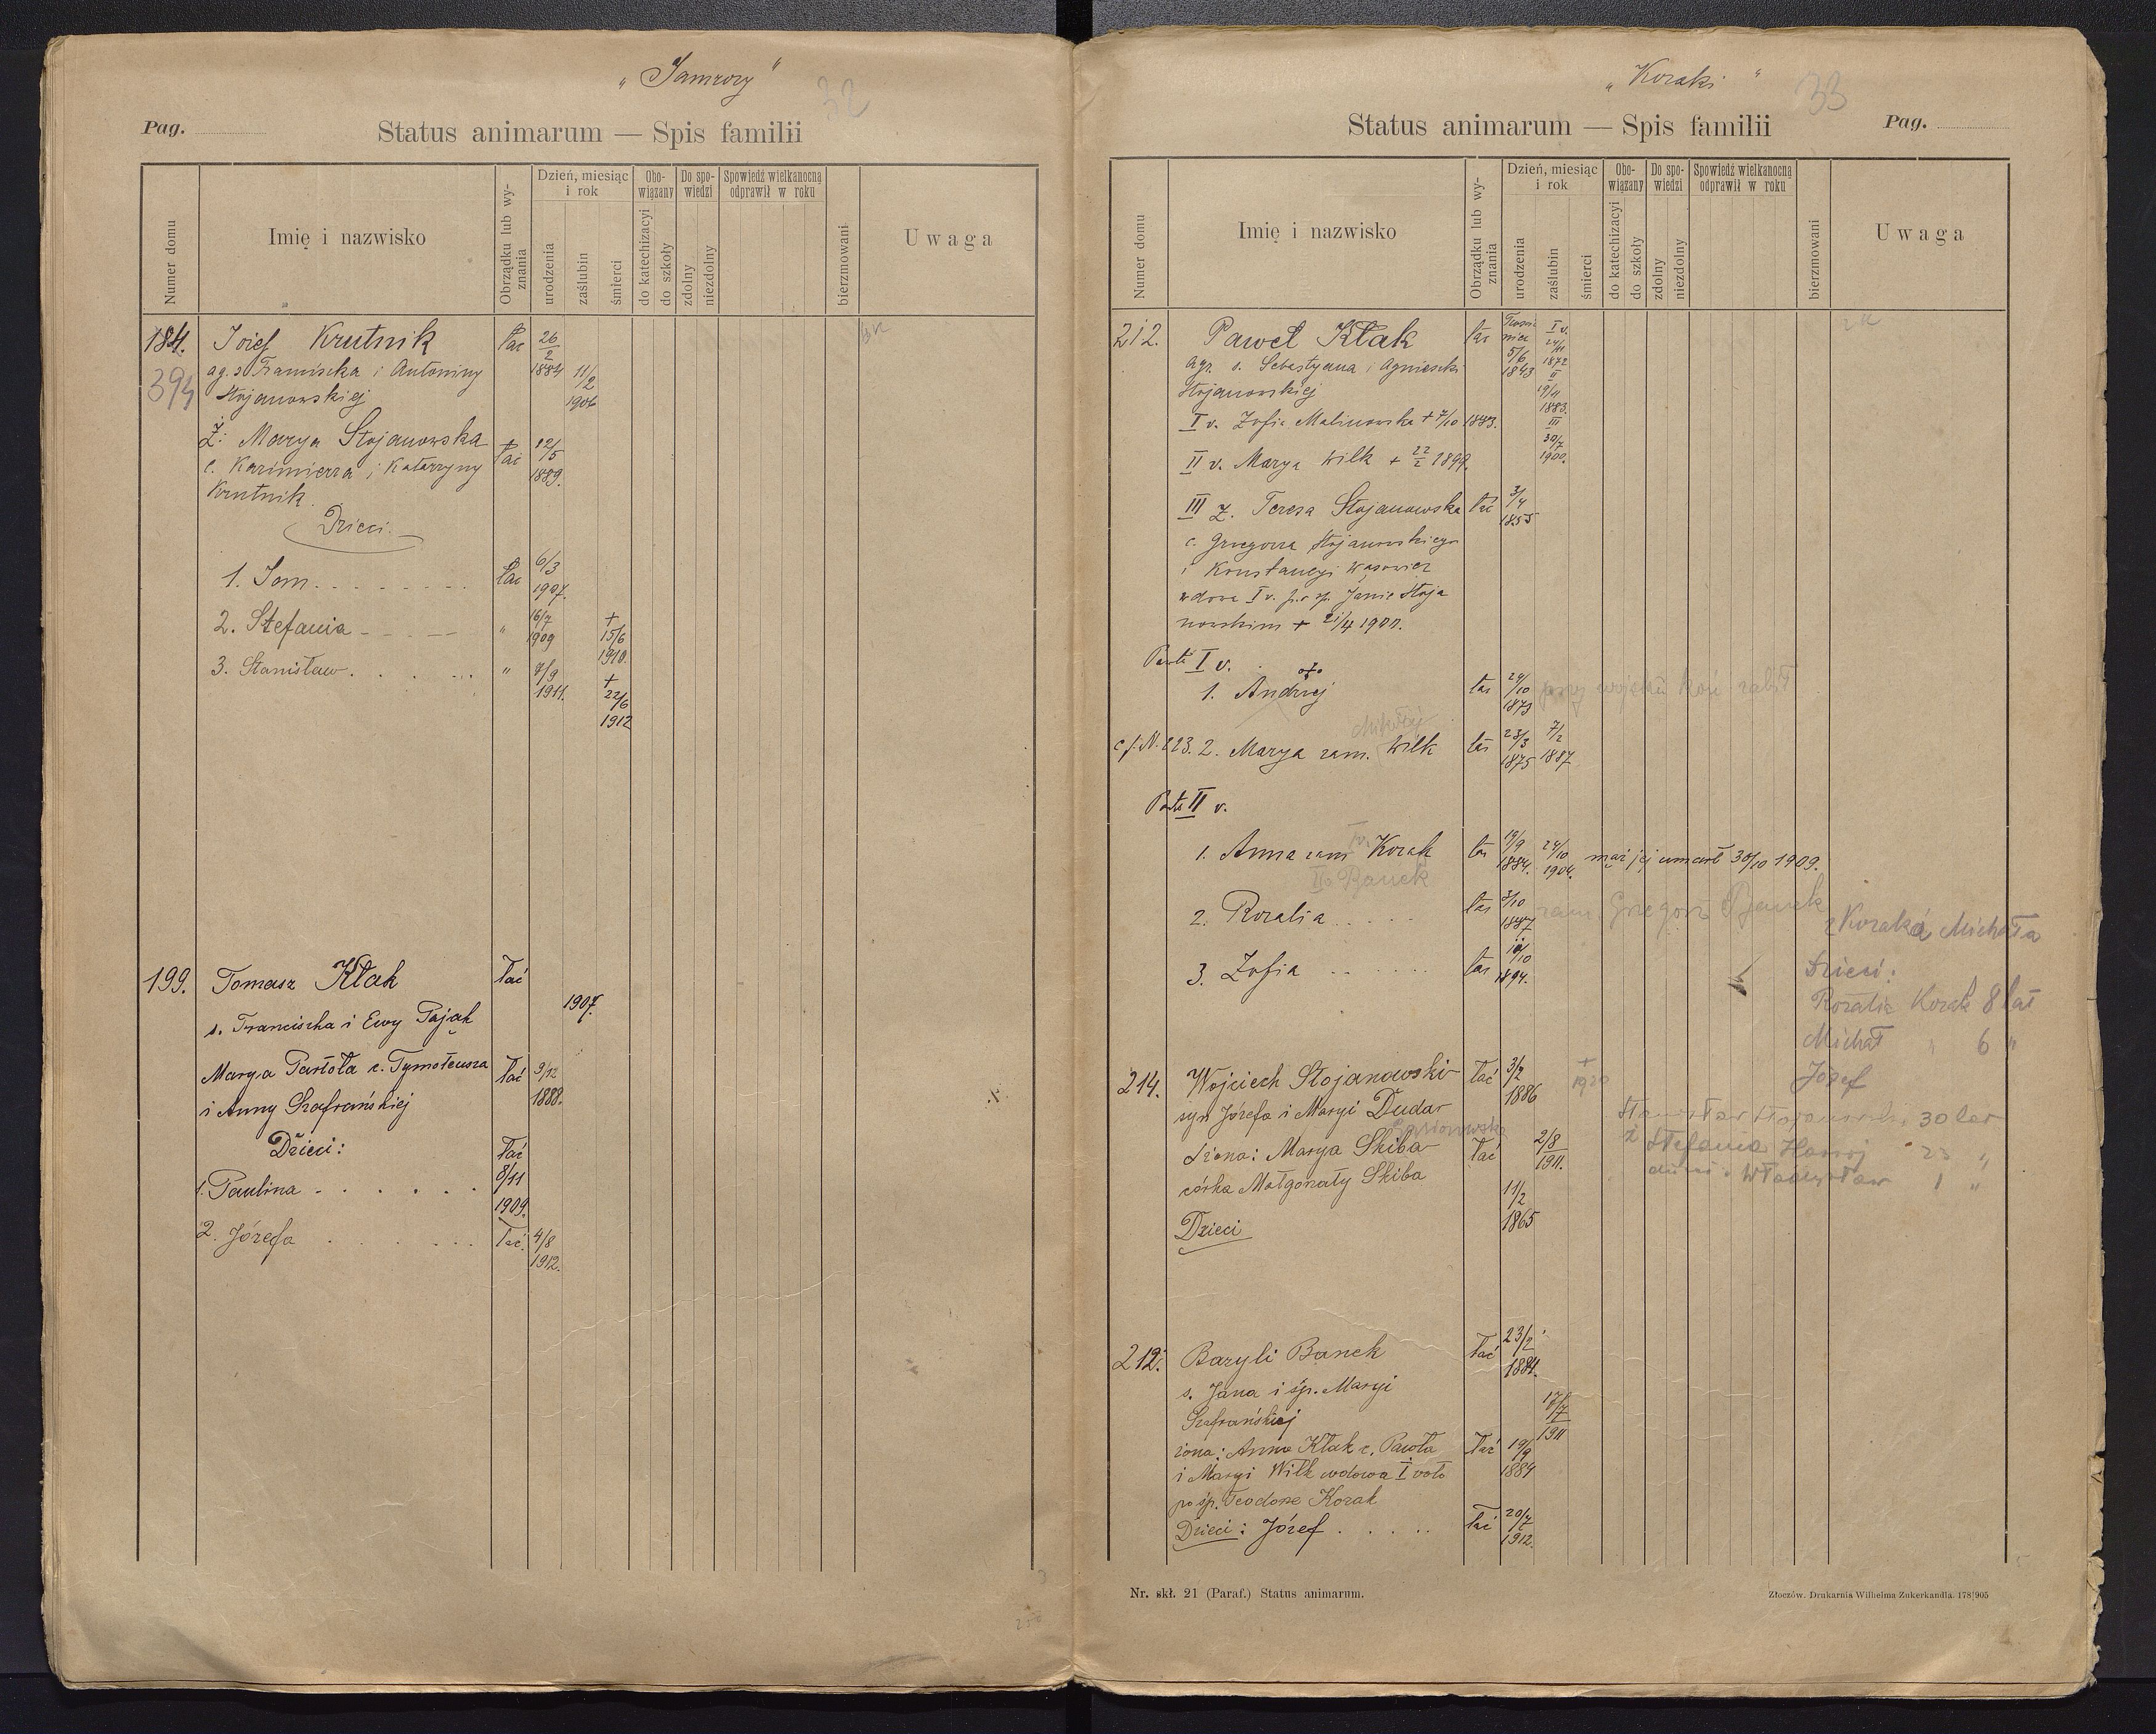 „Jamrozy"
32
Pag.
Status animarum — Spis familii
Numer domu
Imię i nazwisko
Obrządku lub wyznania
Dzień, miesiąc i rok
urodzenia
zaślubin
śmierci
Obowiązany
do katechizacyi
do szkoły
Do spowiedzi
zdolny
niezdolny
Spowiedź wielkanocną odprawił w roku
bierzmowani
Uwaga
184. Józef Krutnik łac 26/2 1884
394 ag. s. Franciszka i Antoniny 11/2 1906
Stojanowskiej
Ż: Marya Stojanowska łac 12/5 1889.
c. Kazimierza i Katarzyny
Krutnik
Dzieci:
1. Jan łac 6/3 1907.
2. Stefania " 16/7 1909 + 15/6 1910.
3. Stanisław " 7/9 1911. + 22/6 1912
199. Tomasz Kłak łać
s. Franciszka i Ewy Pająk 1907.
Marya Partoła c. Tymoteusza łać 9/12 1888.
i Anny Szafrańskiej
Dzieci: łać
1. Paulina 8/11 1909.
2. Józefa łać. 4/8 1912.
„Kozaki"
33
Status animarum — Spis familii
Pag.
Numer domu
Imię i nazwisko
Obrządku lub wyznania
Dzień, miesiąc i rok
urodzenia
zaślubin
śmierci
Obowiązany
do katechizacyi
do szkoły
Do spowiedzi
zdolny
niezdolny
Spowiedź wielkanocną odprawił w roku
bierzmowani
Uwaga
212. Paweł Kłak łac 5/6 1843 I v. 24/11 1872
agr. s. Sebastyana i Agnieszki
Stojanowskiej II 19/11 1883.
I v. Zofia Malinowska + 7/10 1883. III 30/7 1900.
II v. Marya Wilk + 22/2 1899.
III Ż. Teresa Stojanowska łac 3/4 1855
c. Grzegorza Stojanowskiego
i Konstancyi Wąsowicz
wdowa I v. po śp. Janie Stoja
nowskim + 21/4 1900.
I v.
1. Andrzej łac 24/10 1873 przy wojsku koń zabił
cf. N. 223. 2. Marya zam. Wilk łac 23/3 1875 7/2 1887
II v.
1. Anna zam Iv. Kozak łac 19/9 1884. 24/10 1904. mąż jej umarł 30/10 1909.
IIv Banek
2. Rozalia łac 3/10 1887 zam. Grzegorz Banek
z Kozaka Michała
3. Zofia łac 10/10 1894.
Dzieci:
Rozalia Kozak 8 lat
Michał " 6 "
Józef
214. Wojciech Stojanowski łać 3/2 1886 + 1920
syn Józefa i Maryi Dudar
Stanisław Stojanowski 30 lat
żona: Marya Skiba łać 2/8 1911.
ż Stefania 23 "
córka Małgorzaty Skiba 11/2 1865
dzieci: Władysław 1 "
Dzieci
212. Bazyli Banek łać 23/2 1884.
s. Jana i śp. Maryi
Szafrańskiej 17/7 1911
żona: Anna Kłak c. Pawła łać 19/9 1884
i Maryi Wilk wdowa I voto
po śp. Teodorze Kozak
Dzieci: Józef łać 20/7 1912.
Nr. skł. 21 (Paraf.) Status animarum.
Złoczów. Drukarnia Wilhelma Zukerkandla. 178|905